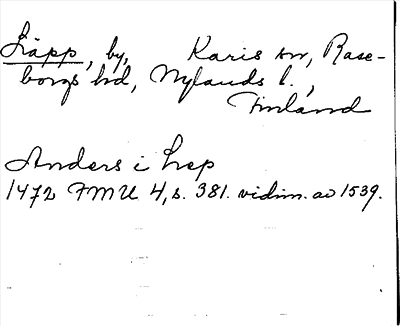 Läpp, by, Karis sn, Rase-
borgs hd, Nylands l.,
Finland
Anders i Lep
1472 FMU 4, s. 381. vidim. av 1539.